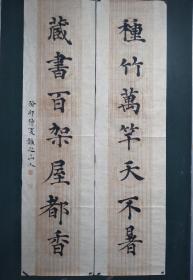 種竹萬竿天不暑
藏書百架屋都香
癸卯
山人